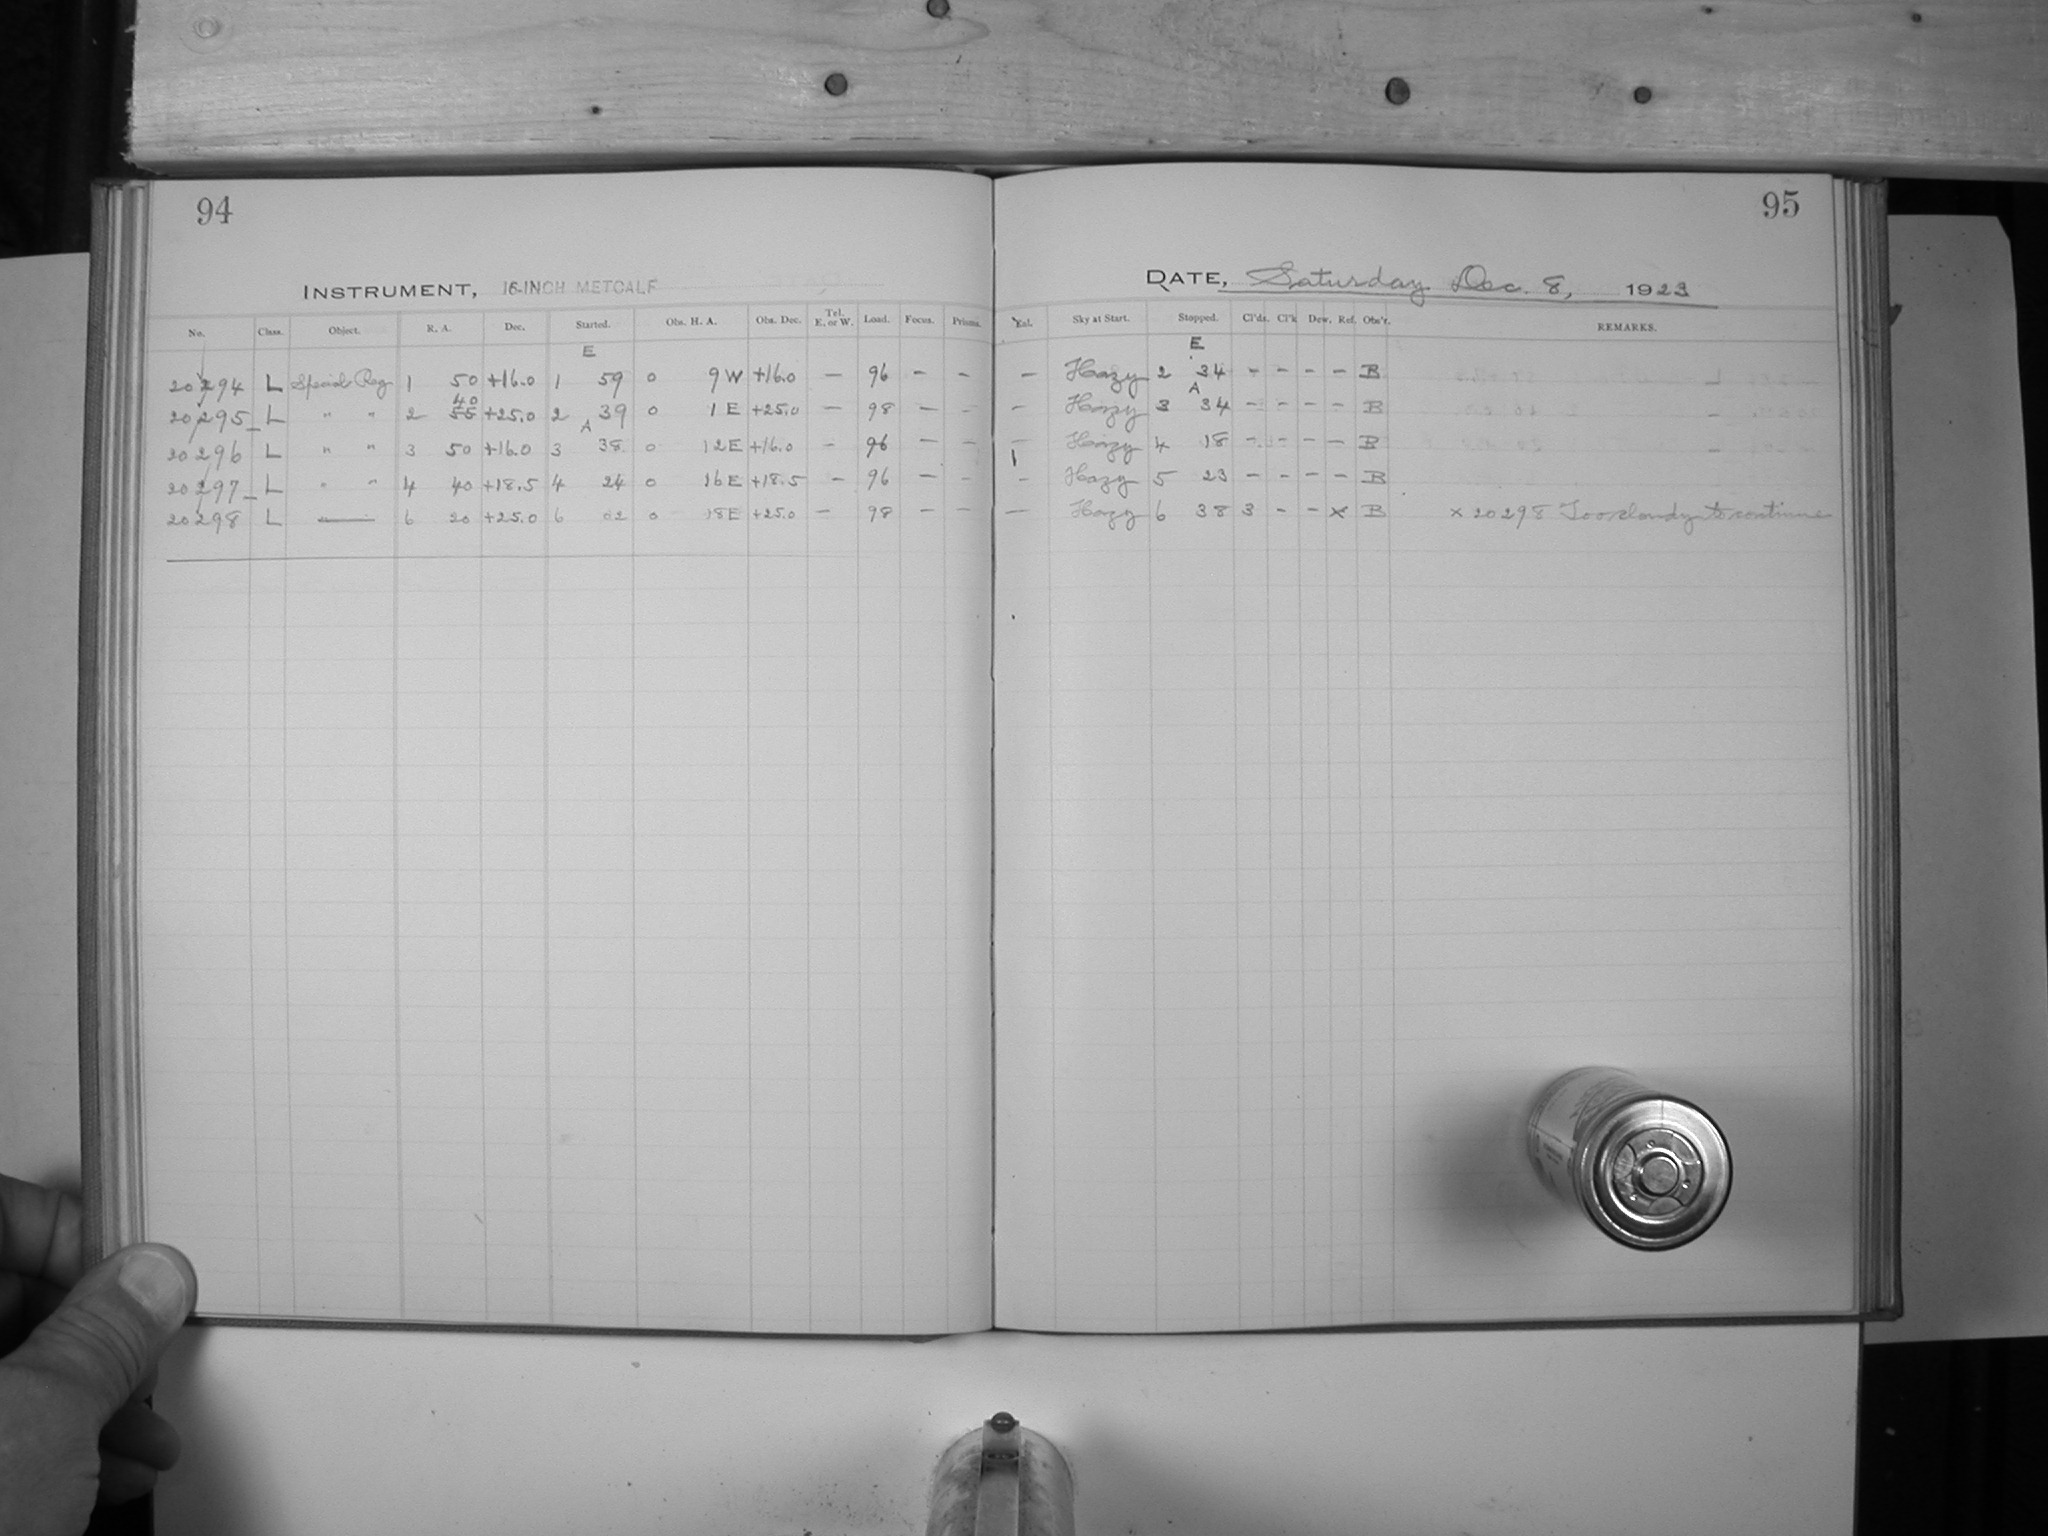 94
INSTRUMENT, 16-INCH METCALF
No. Class. Object. R. A. Dec. Started. Obs. H. A. Obs. Dec. Tel. E. or W. Load. Focus. Prisms.
E
20294 L Special Reg 1 50 +16.0 1 59 0 9 W +16.0 — 96 – –
40
20295 L " " 2 55 +25.0 2 39 0 1 E +25.0 — 98 – –
A
20296 L " " 3 50 +16.0 3 38 0 12 E +16.0 – 96 – –
20297 L " " 4 40 +18.5 4 24 0 16 E +18.5 – 96 – –
20298 L — 6 20 +25.0 6 02 0 18 E +25.0 – 98 – –
95
DATE, Saturday Dec. 8, 1923
Enl. Sky at Start. Stopped. Cl'ds. Cl'k Dew. Ref. Obs'r. REMARKS.
E
– Hazy 2 34 – – – – B
A
– Hazy 3 34 – – – – B
– Hazy 4 18 – – – – B
– Hazy 5 23 – – – – B
— Hazy 6 38 3 – – x B x 20298 Too cloudy to continue